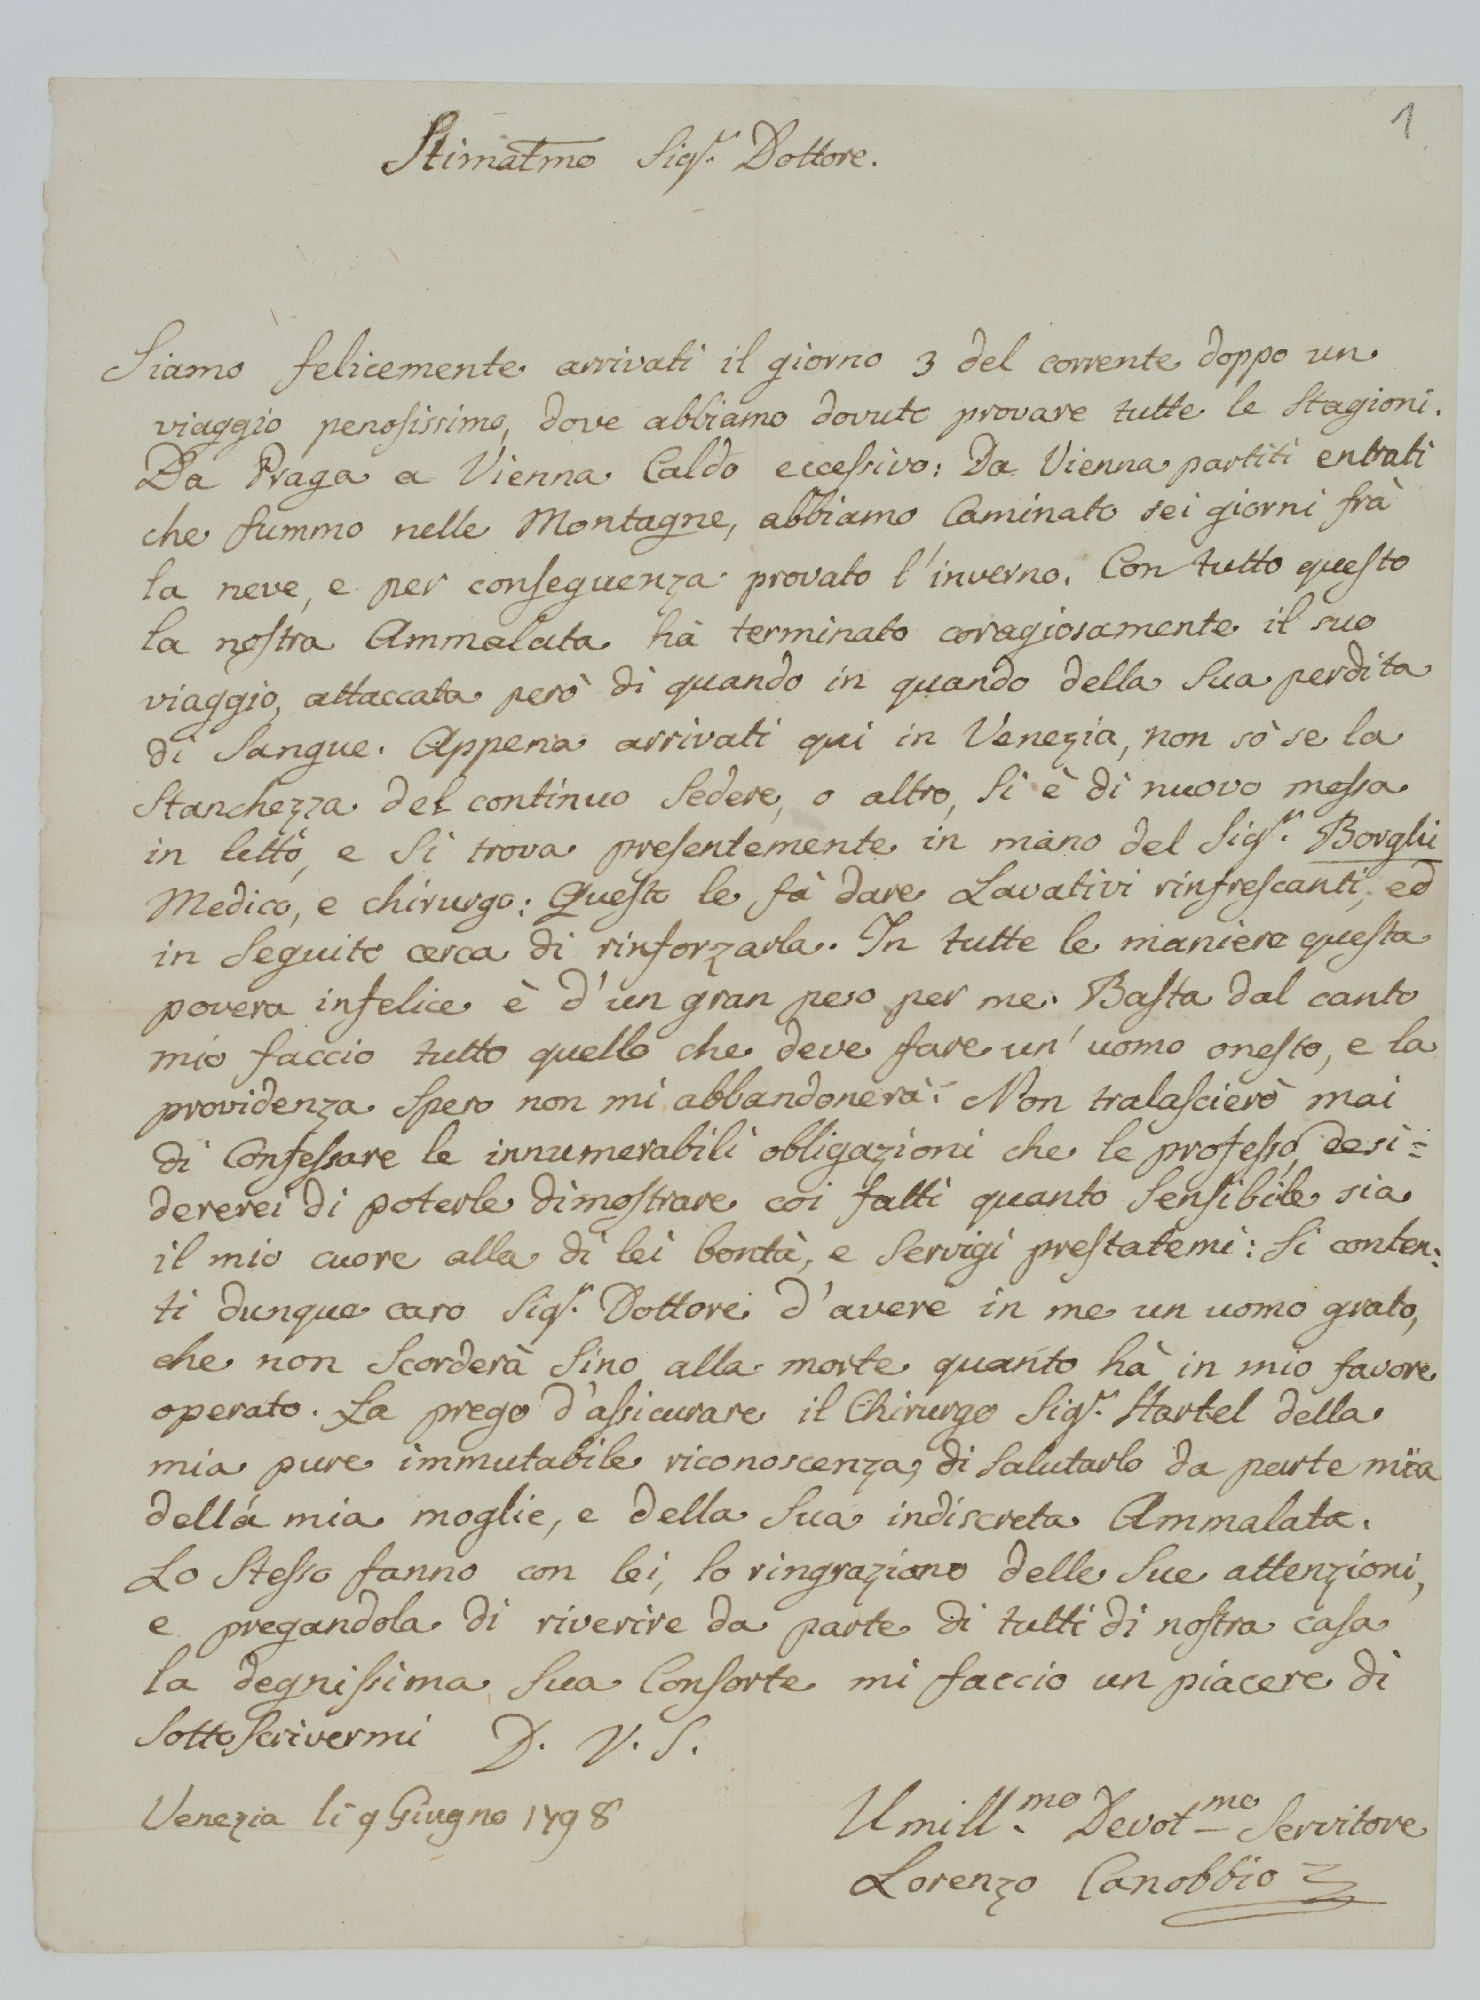 1
Stimatmo Sigr. Dottore.
Siamo felicemente arrivati il giorno 3 del corrente doppo un
viaggio penosissimo, dove abbiamo dovuto provare tutte le stagioni.
Da Praga a Vienna Caldo eccessivo: Da Vienna partiti entrati
che fummo nelle Montagne, abbiamo Caminato sei giorni frà
la neve, e per conseguenza provato l'inverno. Con tutto questo
la nostra Ammalata hà terminato coragiosamente il suo
viaggio, attaccata però di quando in quando della sua perdita
di Sangue. Appena arrivati qui in Venezia, non sò se la
Stanchezza del continuo Sedere, o altro, Si è di nuovo messa
in letto, e Si trova presentemente in mano del Sigr. Borghi
Medico, e chirurgo: Questo le fà dare Lavativi rinfrescanti, ed
in Seguito cerca di rinforzarla. In tutte le maniere questa
povera infelice è d'un gran peso per me. Basta dal canto
mio faccio tutto quello che deve fare un' uomo onesto, e la
providenza Spero non mi abbandonerà. Non tralascierò mai
di Confessare le innumerabili obligazioni che le professo, desi=
dererei di poterle dimostrare coi fatti quanto Sensibile sia
il mio cuore alla di lei bontà, e Servigi prestatemi: Si conten:
ti dunque caro Sigr. Dottore d'avere in me un uomo grato,
che non Scorderà Sino alla morte quanto hà in mio favore
operato. La prego d'assicurare il Chirurgo Sigr. Hartel della
mia pure immutabile riconoscenza, di Salutarlo da parte mia
della mia moglie, e della Sua indiscreta Ammalata.
Lo Stesso fanno con lei, lo ringraziano delle Sue attenzioni,
e pregandola di riverire da parte di tutti di nostra casa
la degnissima Sua Consorte mi faccio un piacere di
SottoScrivermi D. V. S.
Venezia li 9 Giugno 1798
Umillmo Devotmo Servitore
Lorenzo Canobbio